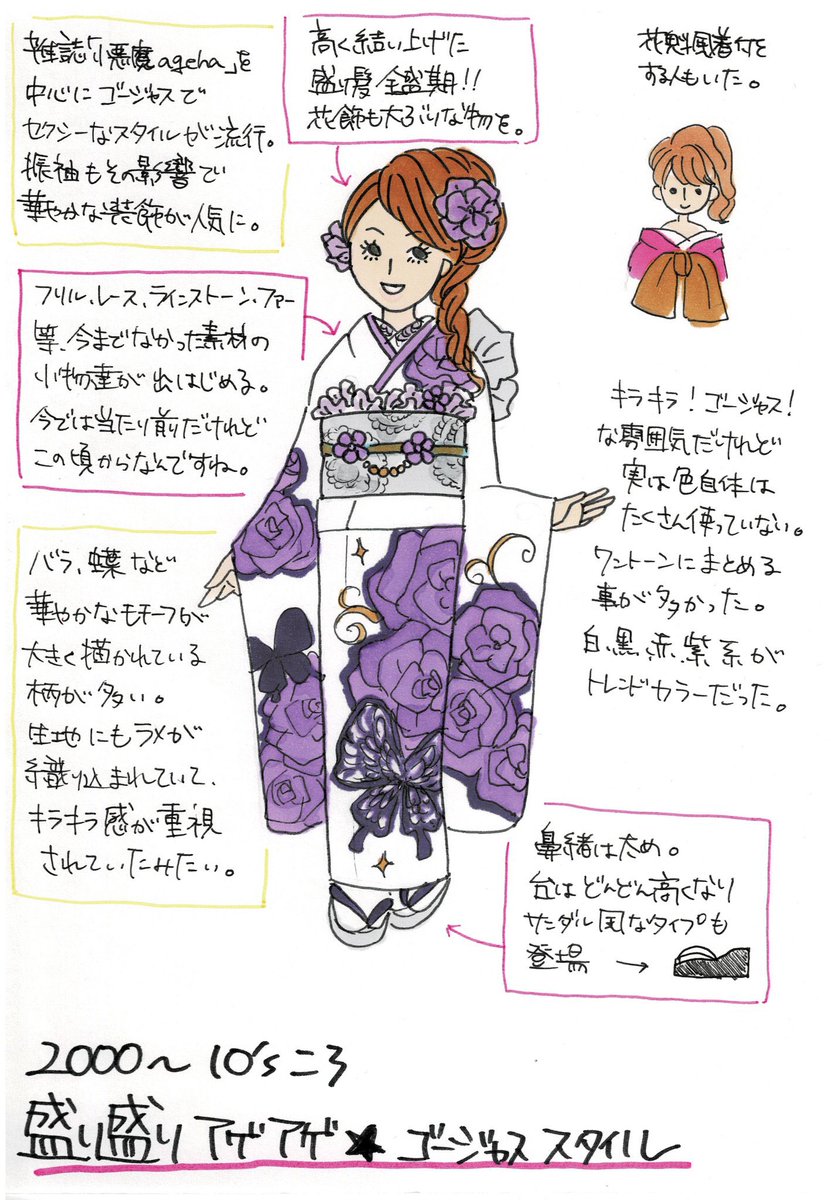 雑誌「小悪魔ageha」を
中心にゴージャスで
セクシーなスタイルが流行。
振袖もその影響で
華やかな装飾が人気に。
高く結い上げた
盛り髪全盛期!!
花飾も大ぶりな物を。
花魁風着付を
する人もいた。
フリル、レース、ラインストーン、ファー
等、今までなかった素材の
小物達が出はじめる。
今では当たり前だけれど
この頃からなんですね。
キラキラ!ゴージャス!
な雰囲気だけれど
実は色自体は
たくさん使っていない。
ワントーンにまとめる
事が多かった。
白、黒、赤、紫系が
トレンドカラーだった。
バラ、蝶など
華やかなモチーフが
大きく描かれている
柄が多い。
生地にもラメが
織り込まれていて、
キラキラ感が重視
されていたみたい。
鼻緒は太め。
台はどんどん高くなり
サンダル風なタイプも
登場 →
2000〜10'sころ
盛り盛りアゲアゲ★ゴージャススタイル